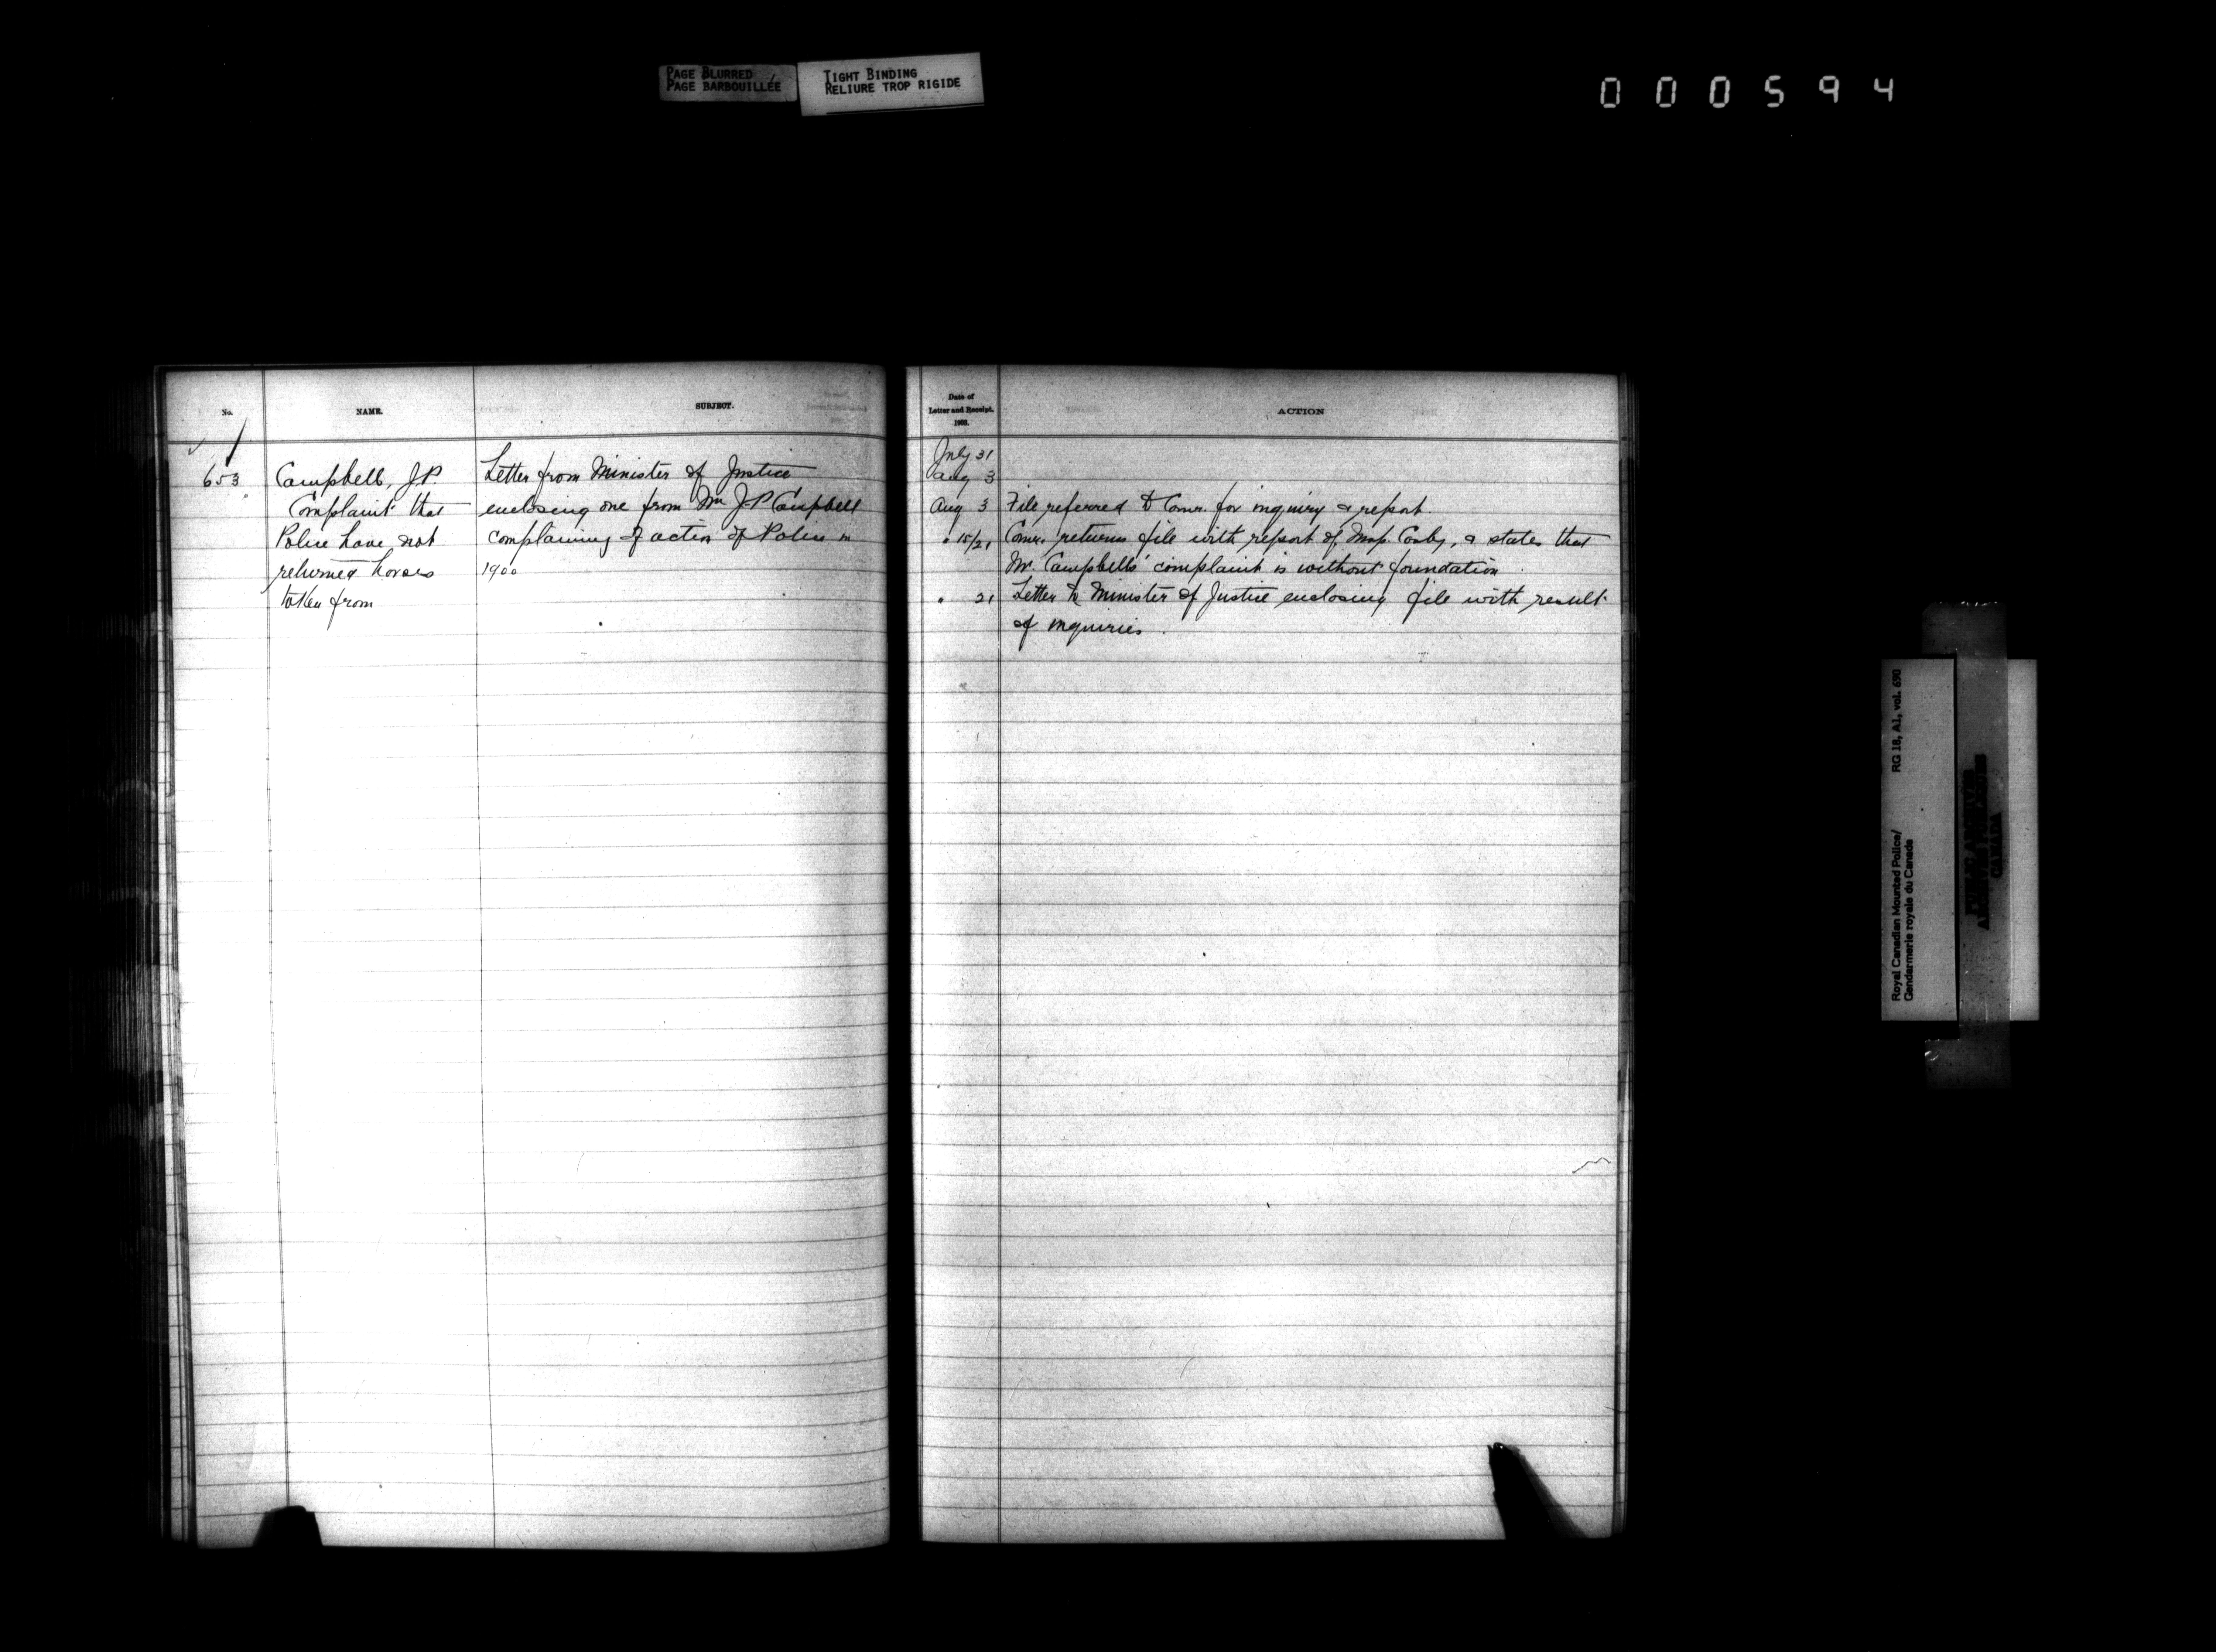 PAGE BLURRED
PAGE BARBOUILLÉE
TIGHT BINDING
RELIURE TROP RIGIDE
000594
No.
NAME.
SUBJECT.
653
Campbell, J.P.
Complaint that
Police have not
returned horses
taken from
Letter from Minister of Justice
enclosing one from Mr J.P Campbell
complaining of action of Police in
1900
Date of
Letter and Receipt.
1903.
ACTION
July 31
Aug 3
Aug 3 File referred to Comr. for inquiry & report.
" 15/21 Comr. returns file with report of Insp. Cosby, & states that
Mr. Campbells' complaint is without foundation.
" 21 Letter to Minister of Justice enclosing file with result
of inquiries.
Royal Canadian Mounted Police/
Gendarmerie royale du Canada
RG 18, A1, vol. 690
PUBLIC ARCHIVES
ARCHIVES PUBLIQUES
CANADA